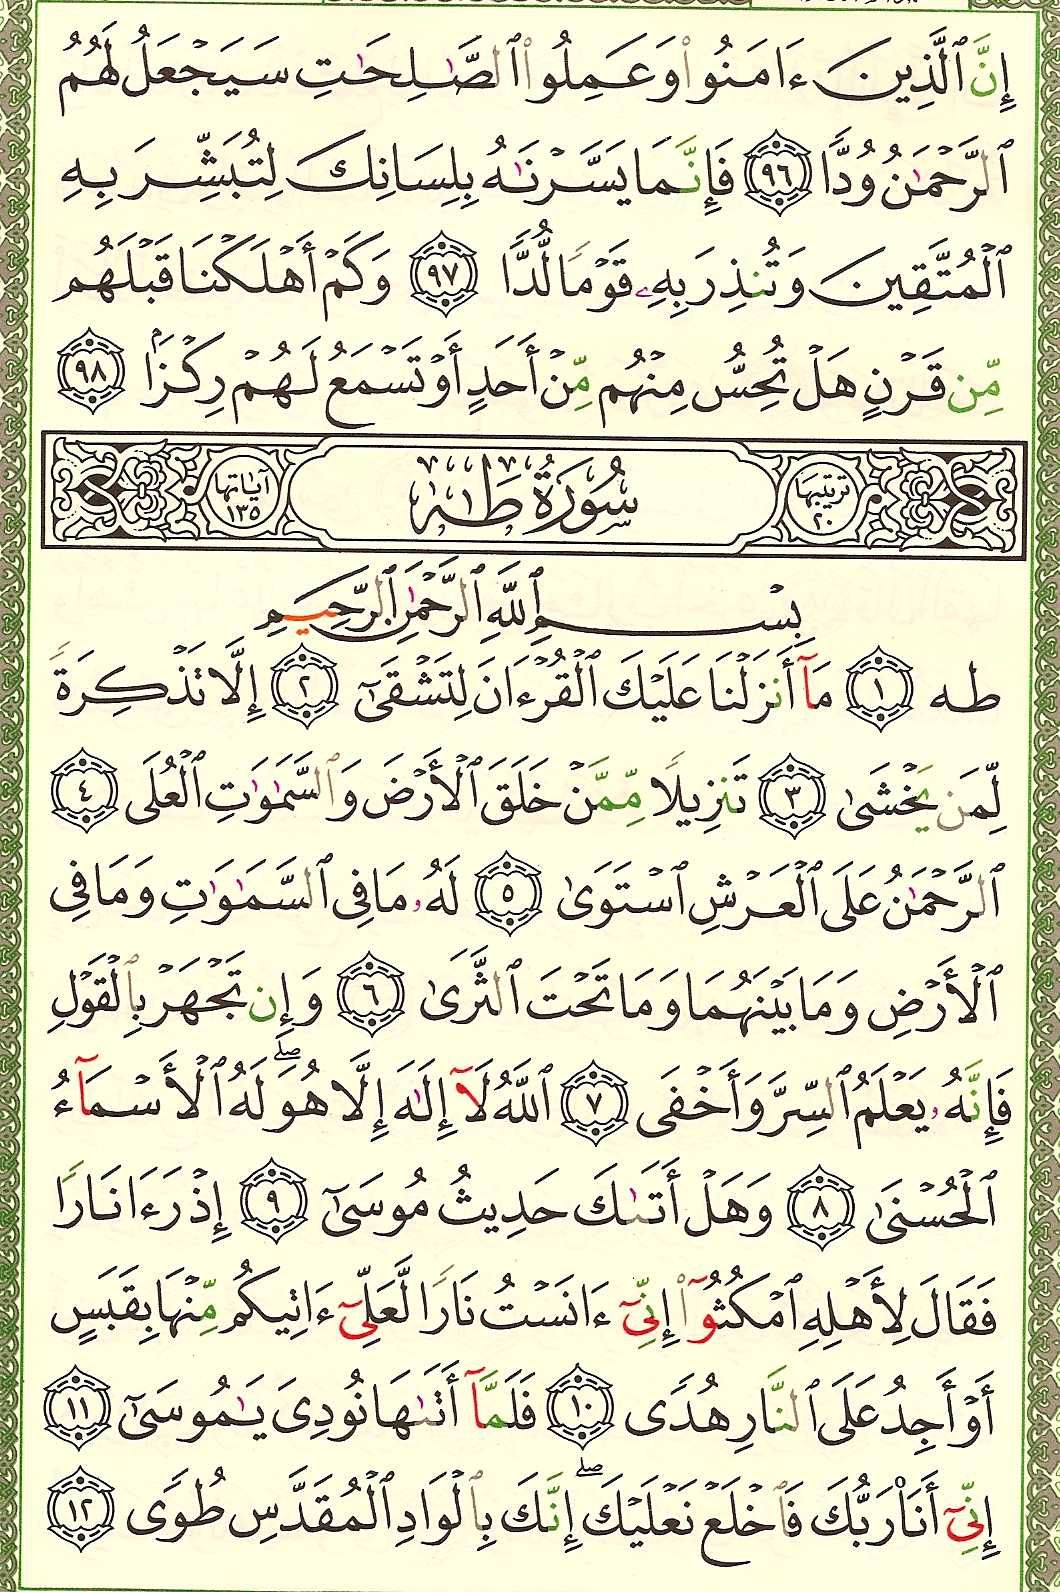 إِنَّ ٱلَّذِينَ ءَامَنُوا۟ وَعَمِلُوا۟ ٱلصَّـٰلِحَـٰتِ سَيَجْعَلُ لَهُمُ
ٱلرَّحْمَـٰنُ وُدًّا ٩٦ فَإِنَّمَا يَسَّرْنَـٰهُ بِلِسَانِكَ لِتُبَشِّرَ بِهِ
ٱلْمُتَّقِينَ وَتُنذِرَ بِهِۦ قَوْمًا لُّدًّا ٩٧ وَكَمْ أَهْلَكْنَا قَبْلَهُم
مِّن قَرْنٍ هَلْ تُحِسُّ مِنْهُم مِّنْ أَحَدٍ أَوْ تَسْمَعُ لَهُمْ رِكْزًۢا ٩٨
ترتيبها ٢٠ سُورَةُ طه آياتها ١٣٥
بِسْمِ ٱللَّهِ ٱلرَّحْمَـٰنِ ٱلرَّحِيمِ
طه ١ مَآ أَنزَلْنَا عَلَيْكَ ٱلْقُرْءَانَ لِتَشْقَىٰٓ ٢ إِلَّا تَذْكِرَةً
لِّمَن يَخْشَىٰ ٣ تَنزِيلًا مِّمَّنْ خَلَقَ ٱلْأَرْضَ وَٱلسَّمَـٰوَٰتِ ٱلْعُلَى ٤
ٱلرَّحْمَـٰنُ عَلَى ٱلْعَرْشِ ٱسْتَوَىٰ ٥ لَهُۥ مَا فِى ٱلسَّمَـٰوَٰتِ وَمَا فِى
ٱلْأَرْضِ وَمَا بَيْنَهُمَا وَمَا تَحْتَ ٱلثَّرَىٰ ٦ وَإِن تَجْهَرْ بِٱلْقَوْلِ
فَإِنَّهُۥ يَعْلَمُ ٱلسِّرَّ وَأَخْفَى ٧ ٱللَّهُ لَآ إِلَـٰهَ إِلَّا هُوَ ۖ لَهُ ٱلْأَسْمَآءُ
ٱلْحُسْنَىٰ ٨ وَهَلْ أَتَىٰكَ حَدِيثُ مُوسَىٰٓ ٩ إِذْ رَءَا نَارًا
فَقَالَ لِأَهْلِهِ ٱمْكُثُوٓا۟ إِنِّىٓ ءَانَسْتُ نَارًا لَّعَلِّىٓ ءَاتِيكُم مِّنْهَا بِقَبَسٍ
أَوْ أَجِدُ عَلَى ٱلنَّارِ هُدًى ١٠ فَلَمَّآ أَتَىٰهَا نُودِىَ يَـٰمُوسَىٰٓ ١١
إِنِّىٓ أَنَا۠ رَبُّكَ فَٱخْلَعْ نَعْلَيْكَ ۖ إِنَّكَ بِٱلْوَادِ ٱلْمُقَدَّسِ طُوًى ١٢